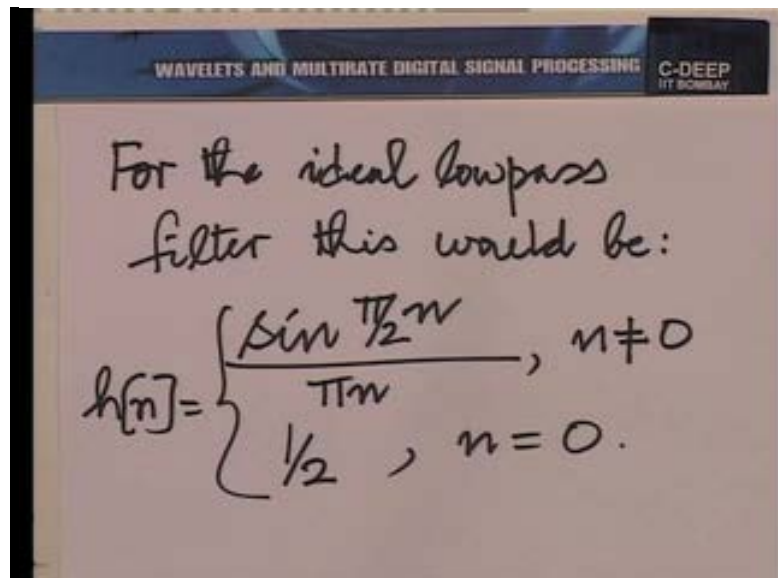 WAVELETS AND MULTIRATE DIGITAL SIGNAL PROCESSING
C-DEEP
IIT BOMBAY
For the ideal lowpass
filter this would be:
sin π/2 n
h[n]= { ―――― , n≠0
πn
1/2 , n=0.